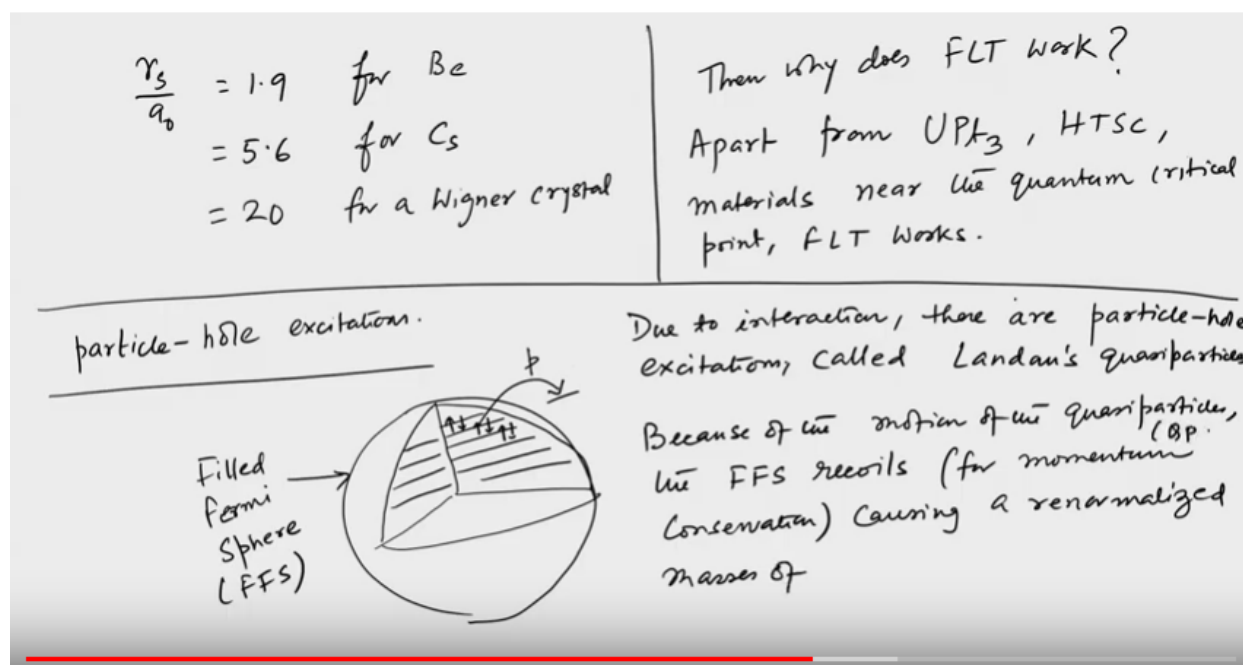 r_s/a_0 = 1.9 for Be
= 5.6 for Cs
= 20 for a Wigner crystal
Then why does FLT work?
Apart from UPt3, HTSC,
materials near the quantum critical
point, FLT works.
particle-hole excitations.
p
↑↓ ↑↓ ↑↓
Filled
fermi
sphere
(FFS)
Due to interaction, there are particle-hole
excitation, called Landau's quasiparticles
Because of the motion of the quasiparticles,
(QP.
the FFS recoils (for momentum
conservation) causing a renormalized
masses of